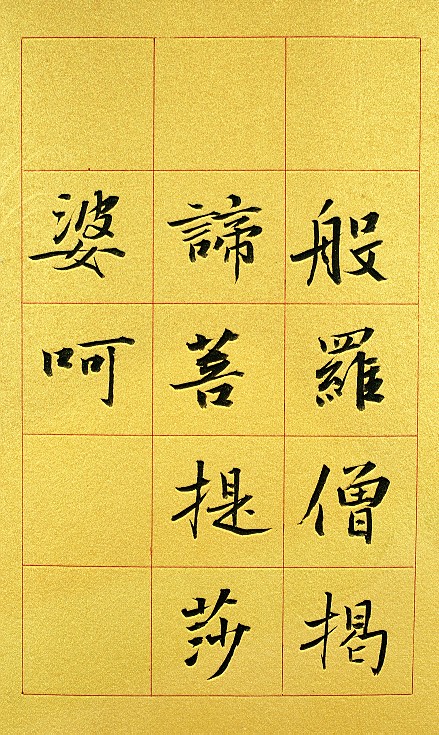 般羅僧揭
諦菩提莎
婆呵